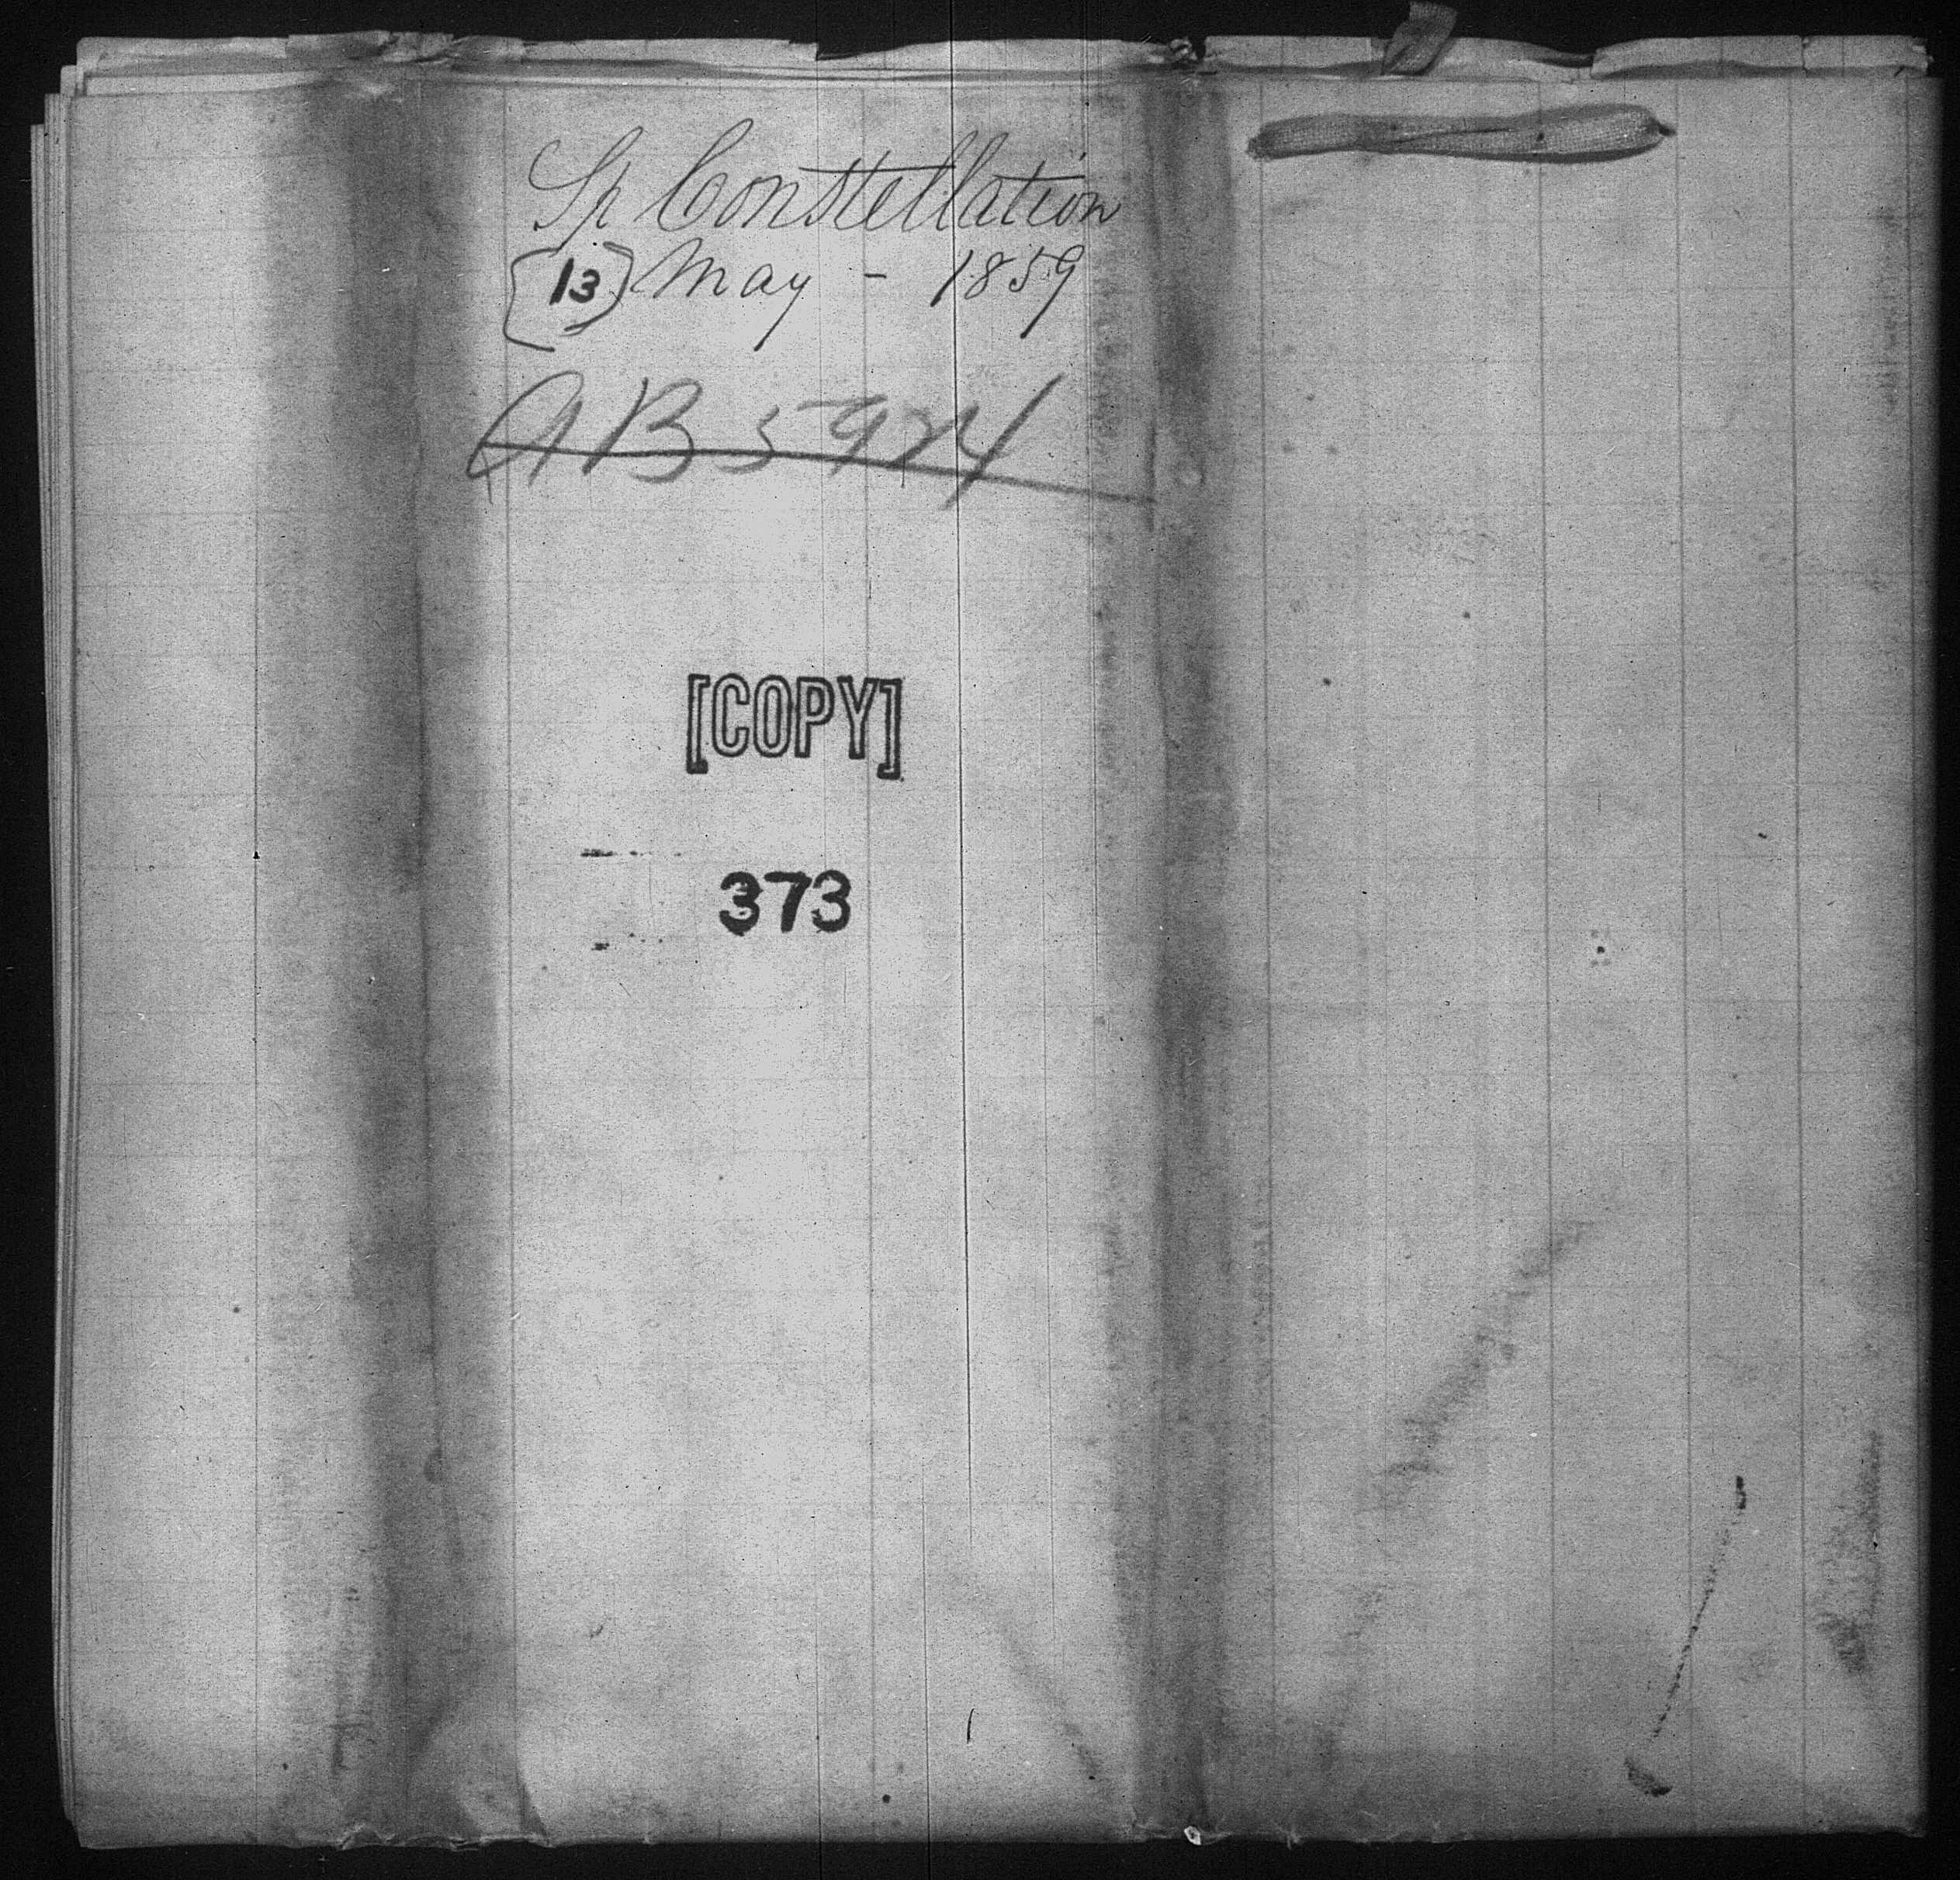 Sp Constellation
(13) May - 1859
AB 5924
[COPY]
373